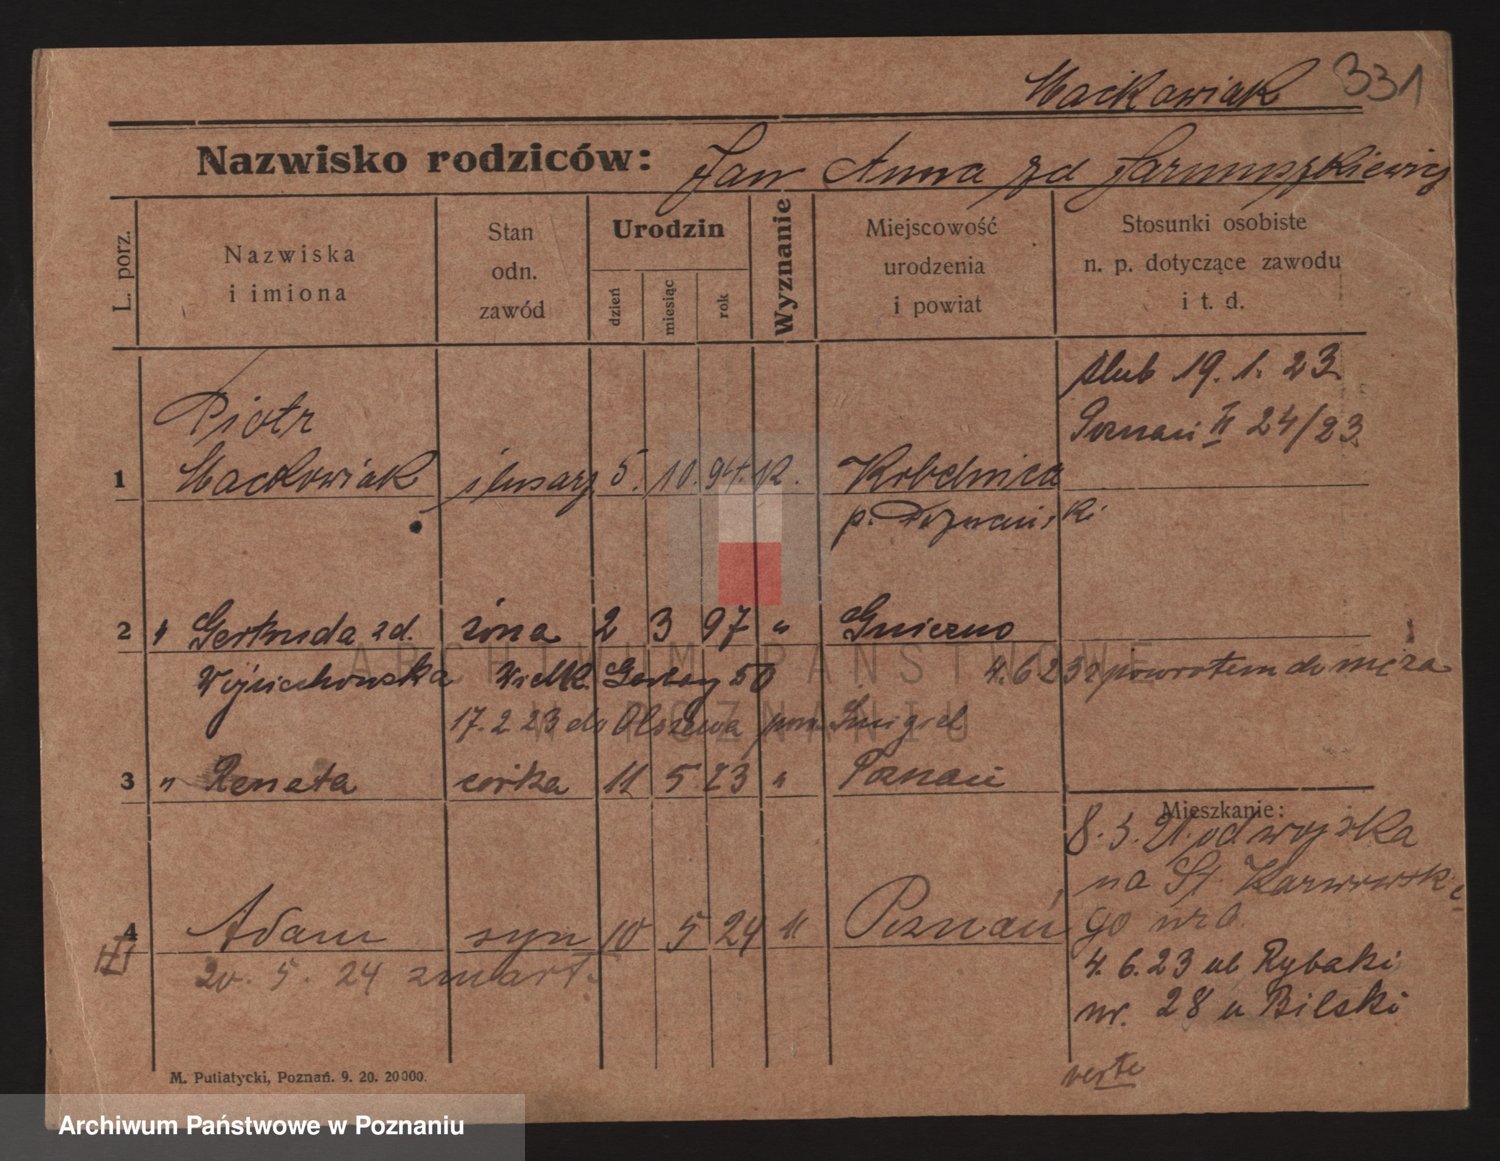 Maćkowiak 331
Nazwisko rodziców: Jan Anna zd Jarmuszkiewicz
L. porz.
Nazwiska
i imiona
Stan
odn.
zawód
Urodzin
dzień
miesiąc
rok
Wyznanie
Miejscowość
urodzenia
i powiat
Stosunki osobiste
n. p. dotyczące zawodu
i t. d.
ślub 19. 1. 23.
Poznań II 24/23.
Piotr
1 Maćkowiak ślusarz 5. 10. 94. k.
p. Poznański
2 " Gertruda zd. żona 2 3 97 " Gniezno
Wojciechowska Wielk. Garbary 50 4.6 23 z powrotem do męża
17. 2 23 do Olszewa pow Śmigiel
3 " Renata córka 11 5 23 " Poznań
Mieszkanie:
8. 3. 21. od wojska
na St Karwowskie
go nr
4 Adam syn 10 5 24 " Poznań
20. 5. 24 zmarł.
4. 6. 23 ul Rybaki
nr. 28 u Bilski
verte
M. Putiatycki, Poznań. 9. 20. 20000.
ARCHIWUM PAŃSTWOWE
W POZNANIU
Archiwum Państwowe w Poznaniu